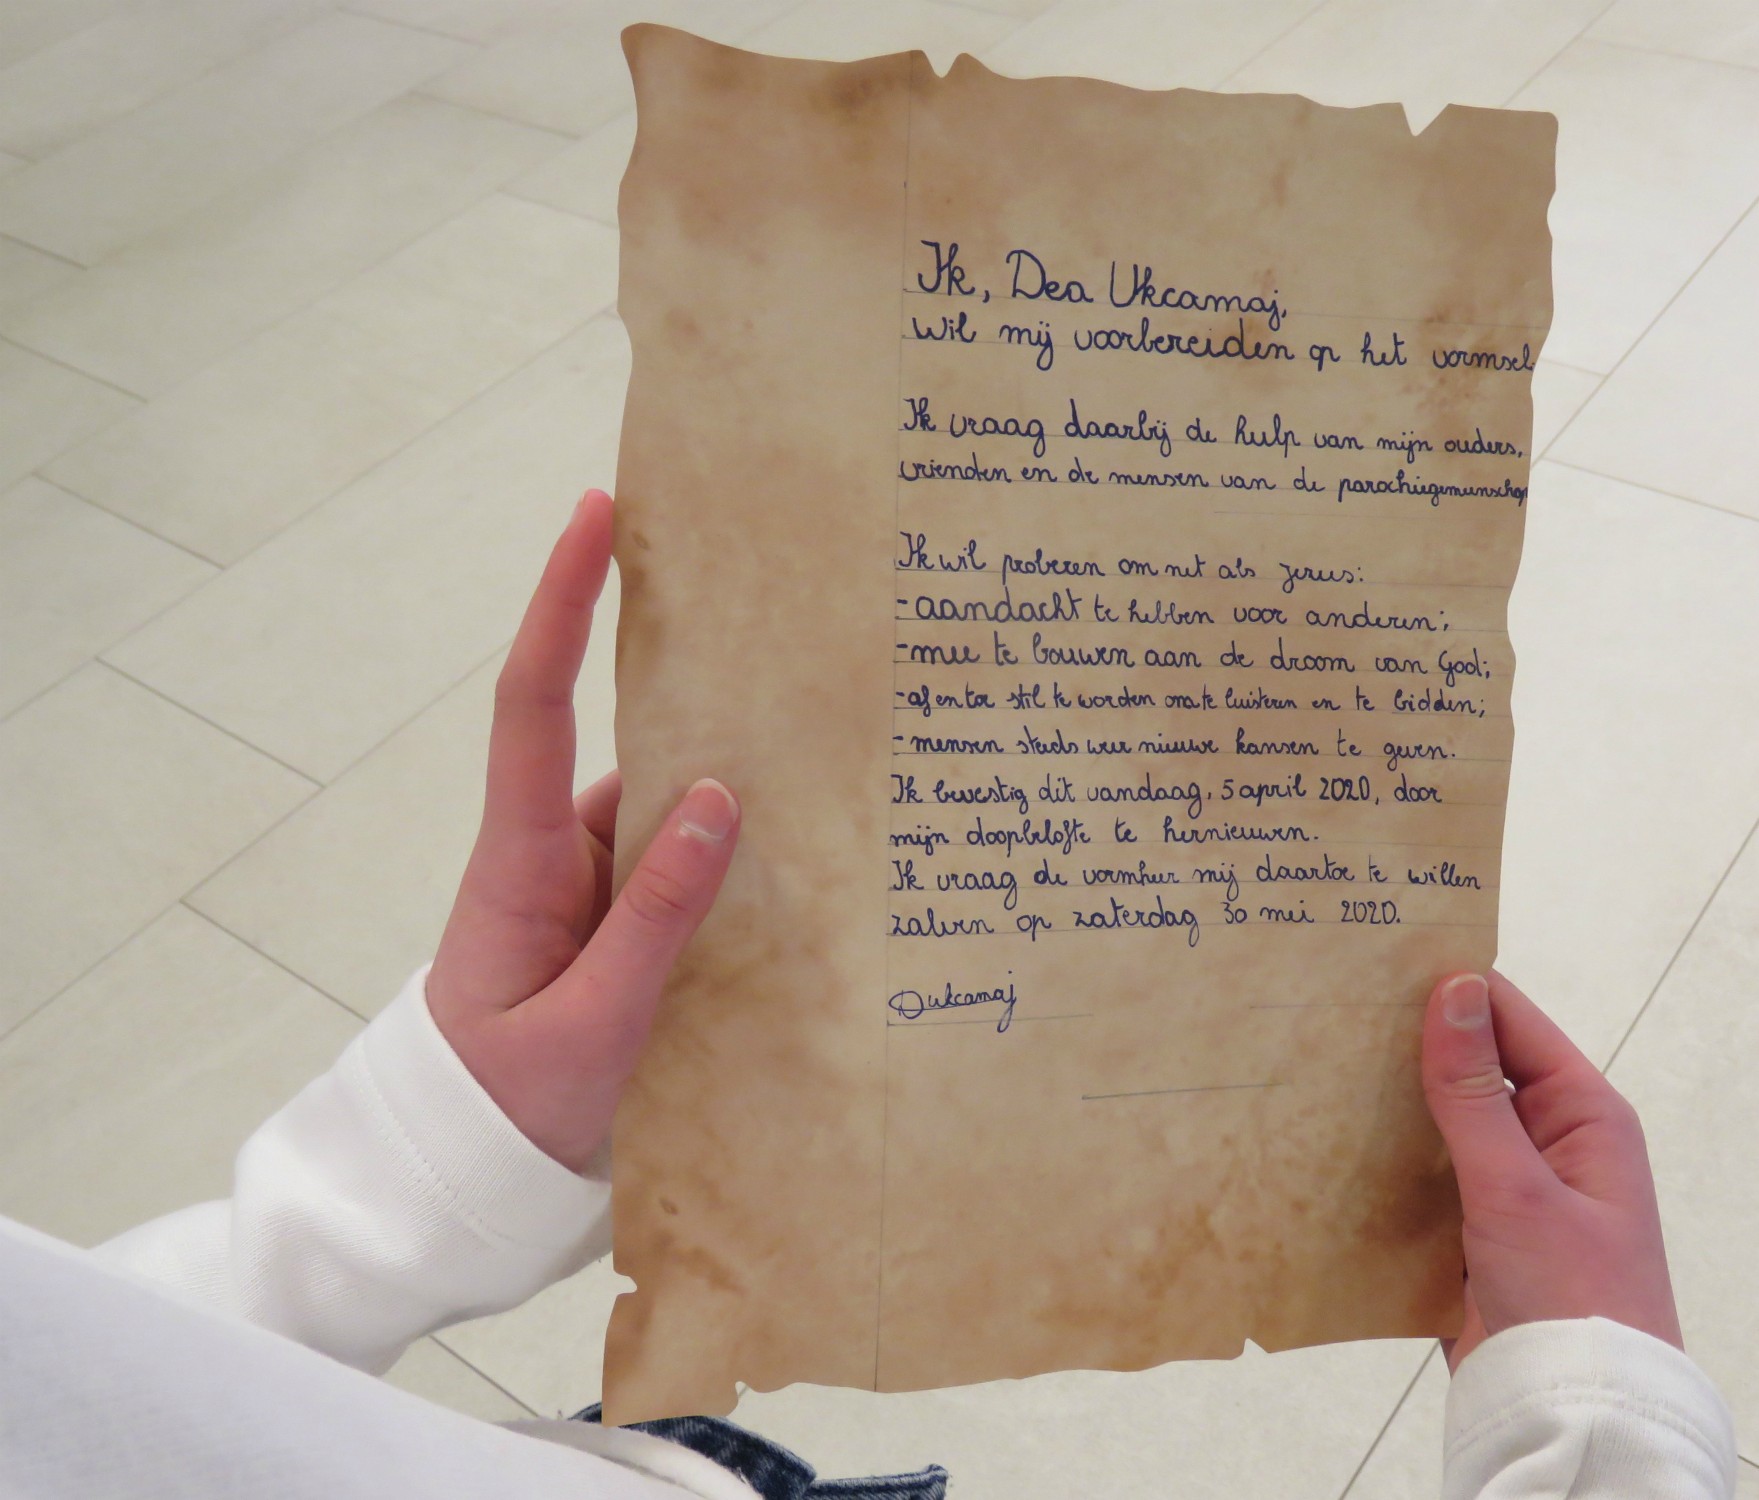 Ik, Dea Ukcamaj,
wil mij voorbereiden op het vormsel.
Ik vraag daarbij de hulp van mijn ouders,
vrienden en de mensen van de
Ik wil proberen om net als Jezus:
- aandacht te hebben voor anderen;
- mee te bouwen aan de droom van God;
- af en toe stil te worden om te luisteren en te bidden;
- mensen steeds weer nieuwe kansen te geven.
Ik bevestig dit vandaag, 5 april 2020, door
mijn doopbelofte te hernieuwen.
Ik vraag de vormheer mij daartoe te willen
zalven op zaterdag 30 mei 2020.
Dukcamaj